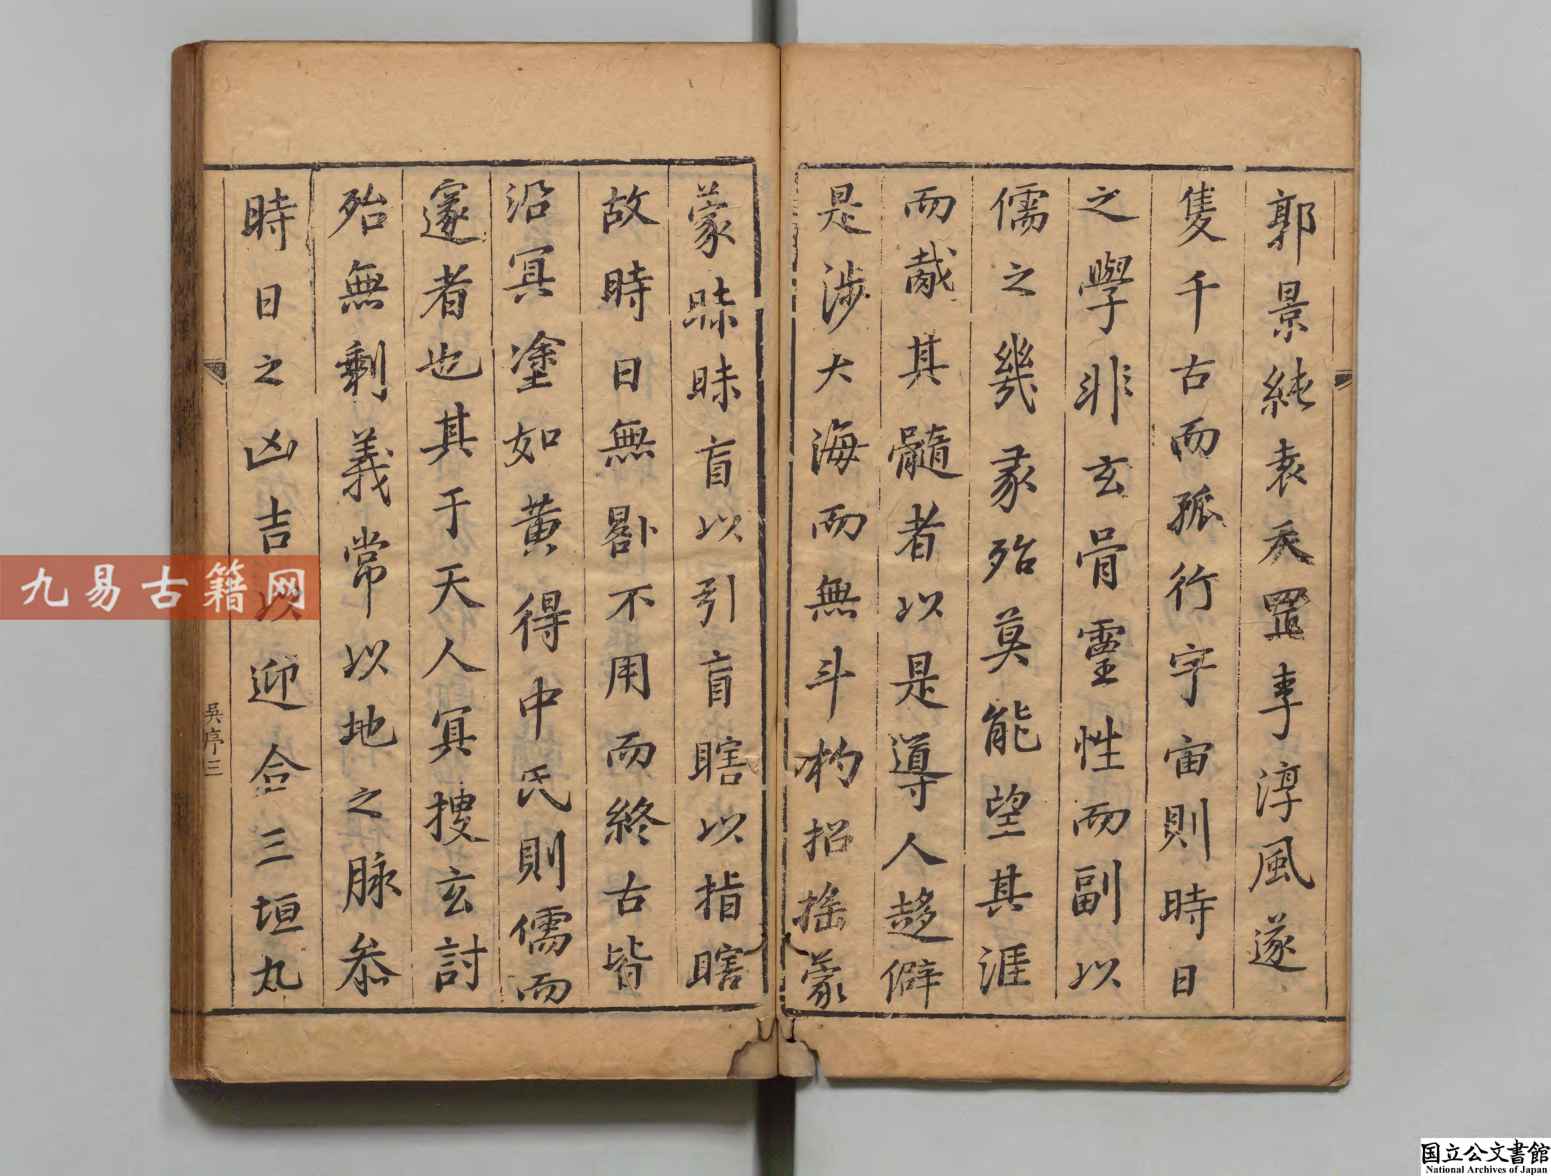 郭景純袁天罡李淳風遂
隻千古而孤行宇宙則時日
之學非玄骨靈性而副以
儒之幾彖殆莫能望其涯
而胾其髓者以是導人趍僻
是涉大海而無斗杓招搖蒙
蒙眛眛盲以引盲瞎以指瞎
故時日無晷不用而終古皆
沿冥塗如黃得中氏則儒而
邃者也其于天人冥搜玄討
殆無剩義常以地之脉叅
時日之凶吉以迎合三垣九
吳序 三
九易古籍网
国立公文書館
National Archives of Japan